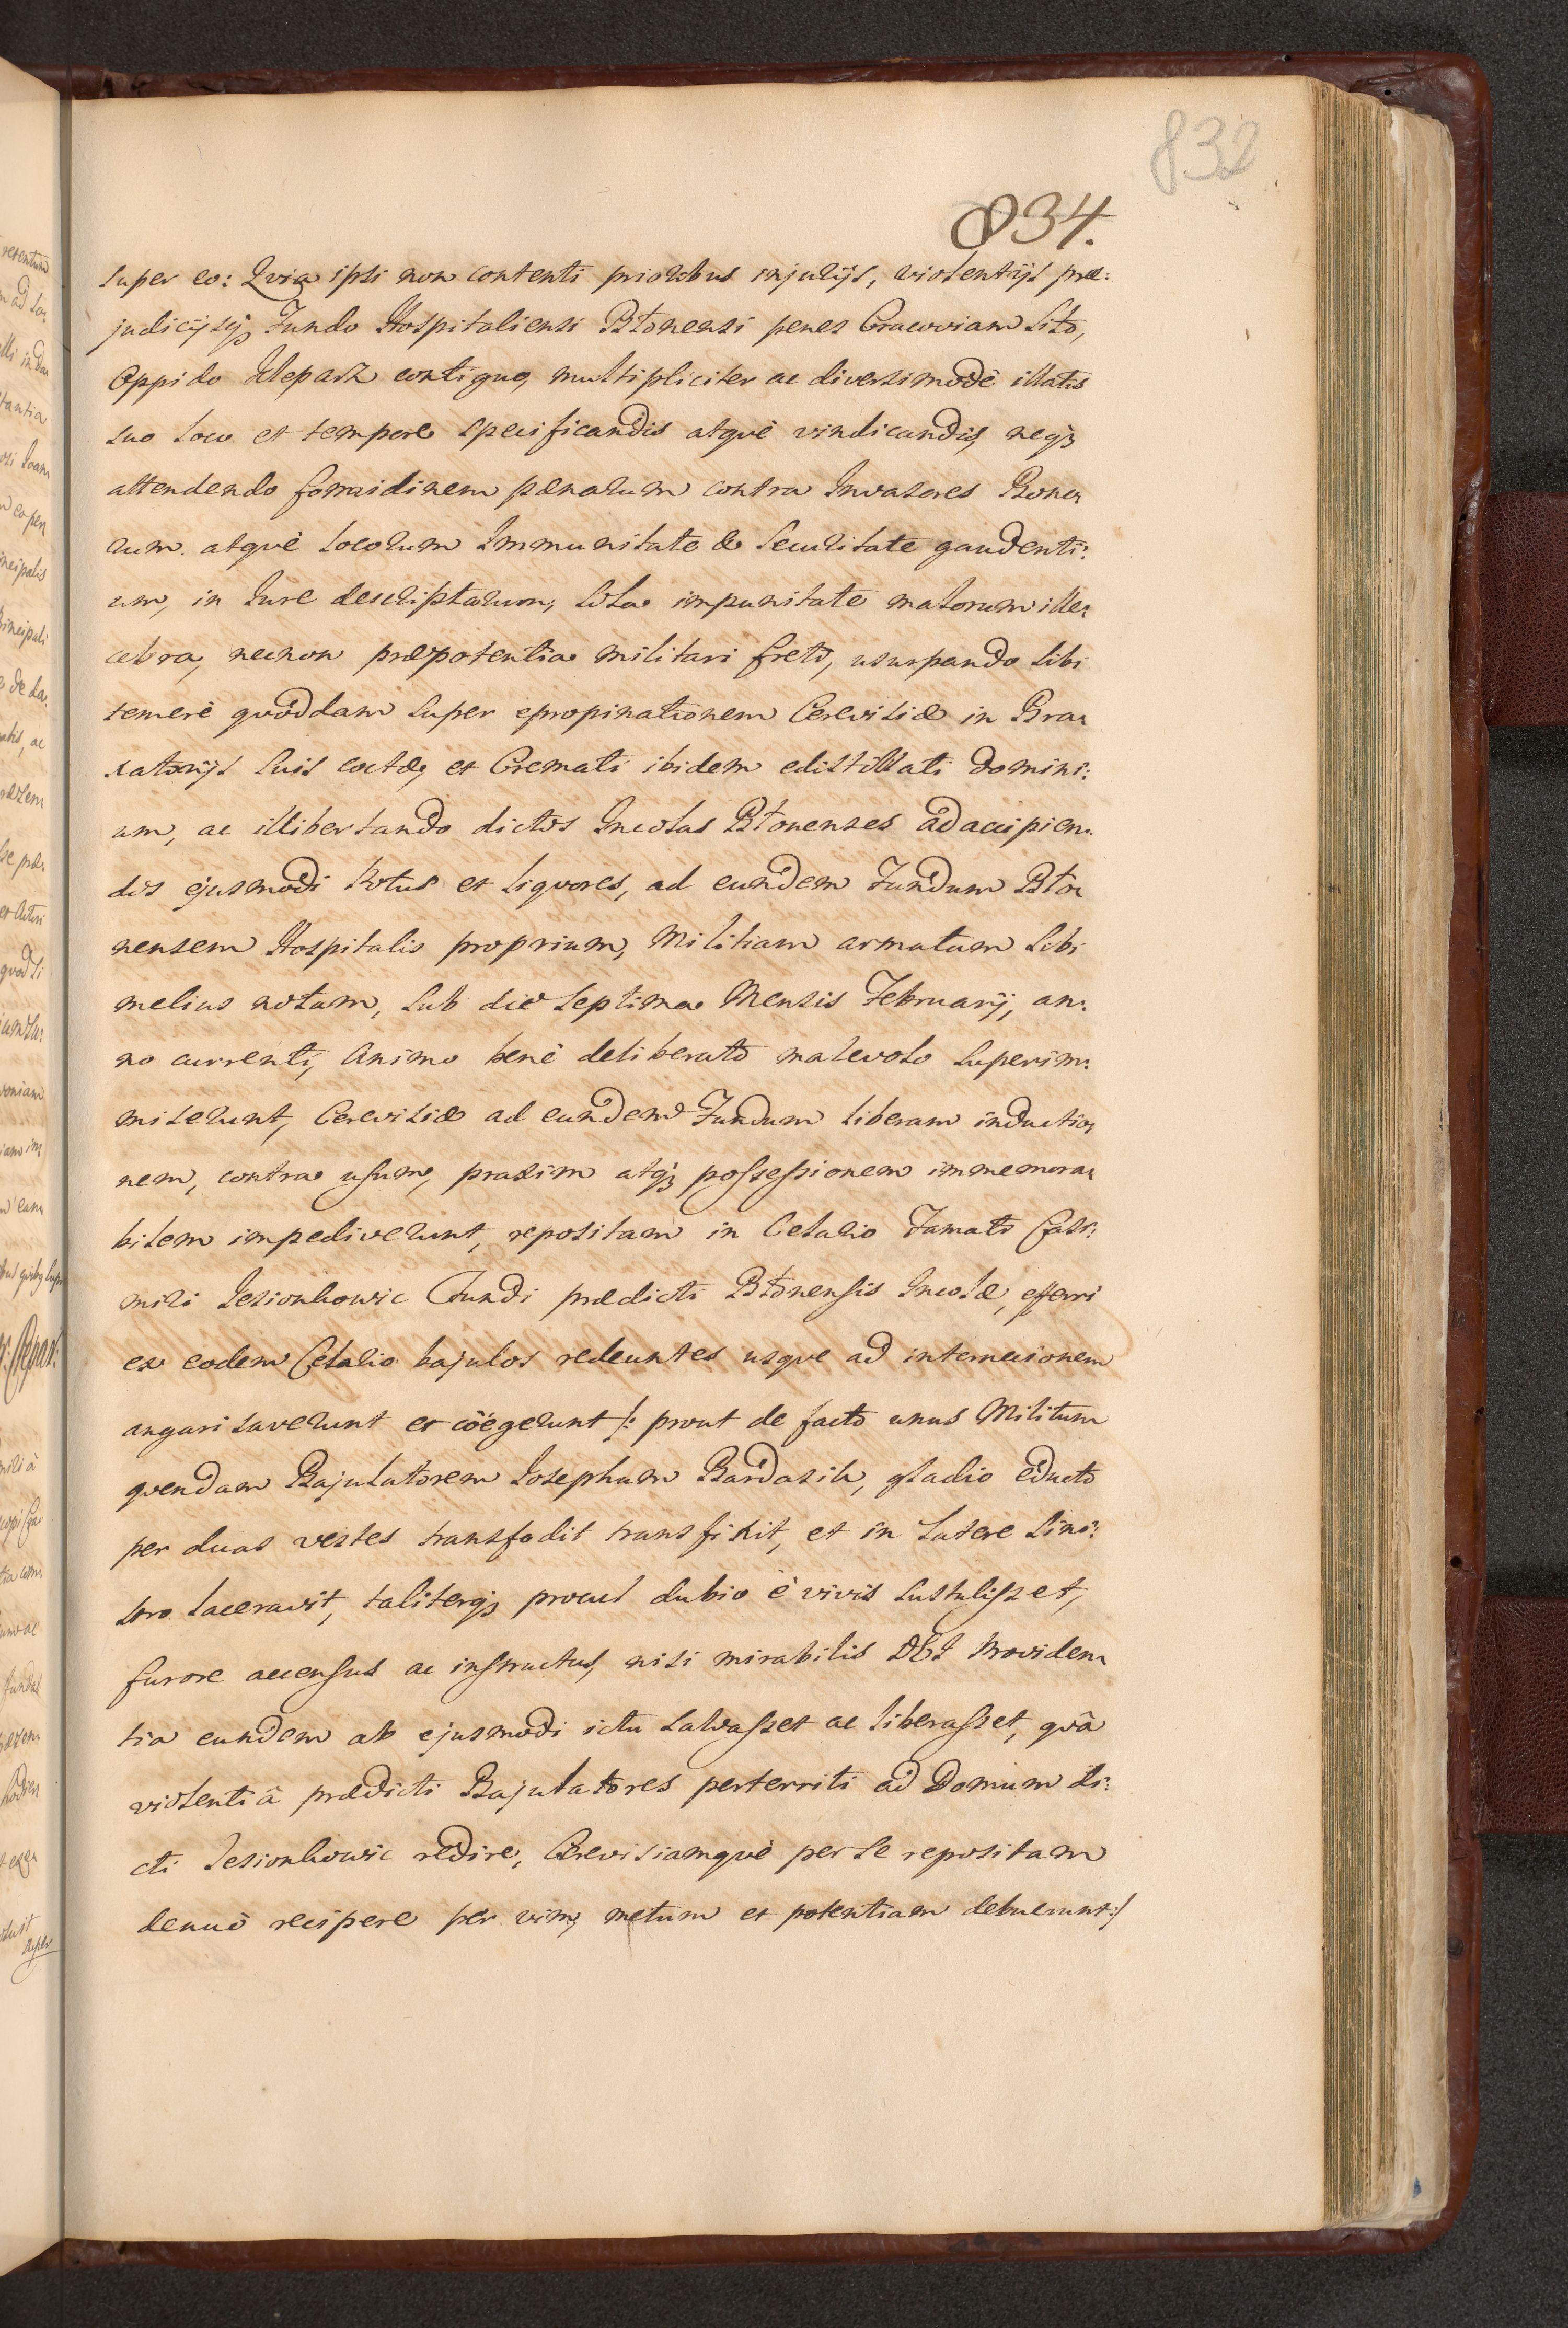 832
834.
super eo: Qvia ipsi non contenti prioribus injurijs, violentijs præ:
judicijsq; Fundo Hospitaliensi Błonensi penes Cracoviam sito,
Oppido Klepasz contiguo, multipliciter ac diversimodè illatis
suo loco et tempore specificandis atqvè vindicandis, neq;
attendendo formidinem pænarum contra Invasores Bono,
rum atqvè locorum Immunitate & securitate gaudenti:
um, in Iure descriptarum, sola impunitate malorum ille,
cebra, necnon præpotentia militari freti, usurpando sibi
temerè qvoddam super epropinationem Cerevisiæ in Bra,
xatorijs suis coctæ, et Cremati ibidem edistillati domini:
um, ac illibertando dictos Incolas Błonenses ad accipien:
dos ejusmodi Potus et liqvores, ad eundem Fundum Bło,
nensem Hospitalis proprium, Militiam armatam sibi
melius notam, sub die septima Mensis Februarij, an:
no currenti, animo benè deliberato malevolo superim:
miserunt, Cerevisiæ ad eundem Fundum liberam inductio,
nem, contra usum, praxim atq; possessionem immemora,
bilem impediverunt, repositam in Celario Famati Casi:
miri Jesionkowic Fundi prædicti Błonensis Incolæ, efferri
ex eodem Celario bajulos redeuntes usque ad internecionem
angarisaverunt et cöegerunt /: prout de facto unus Militum
qvendam Bajulatorem Josephum Bardasik, gladio educto
per duas vestes transfodit transfixit, et in latere sini:
stro laceravit, taliterq; procul dubio è vivis sustulisset,
furore accensus ac instructus, nisi mirabilis DEI Providen,
tia eundem ab ejusmodi ictu salvasset ac liberasset, qvâ
violentiâ prædicti Bajulatores perterriti ad Domum di:
cti Jesionkowic redire, Cerevisiamqvè per se repositam
denuò recipere per vim, metum et potentiam debuerunt :/